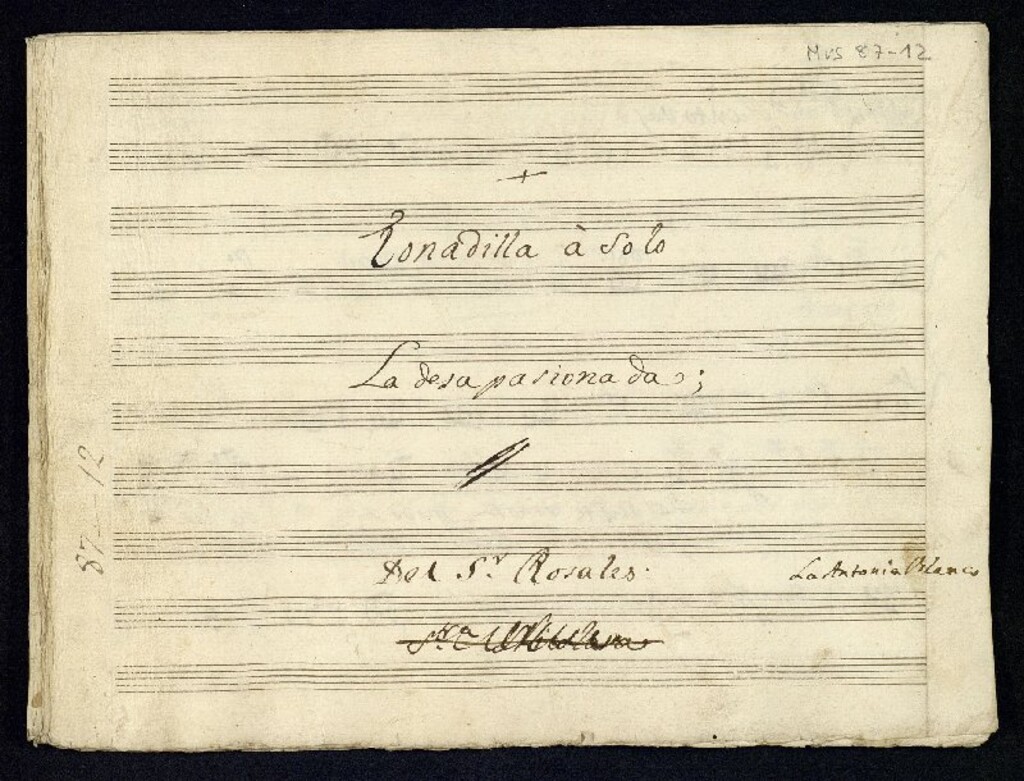 Mus 87-12
Tonadilla à Solo
La desapasionada;
87-12
Del Sr. Rosales.
La Antonia Blanco
Sra